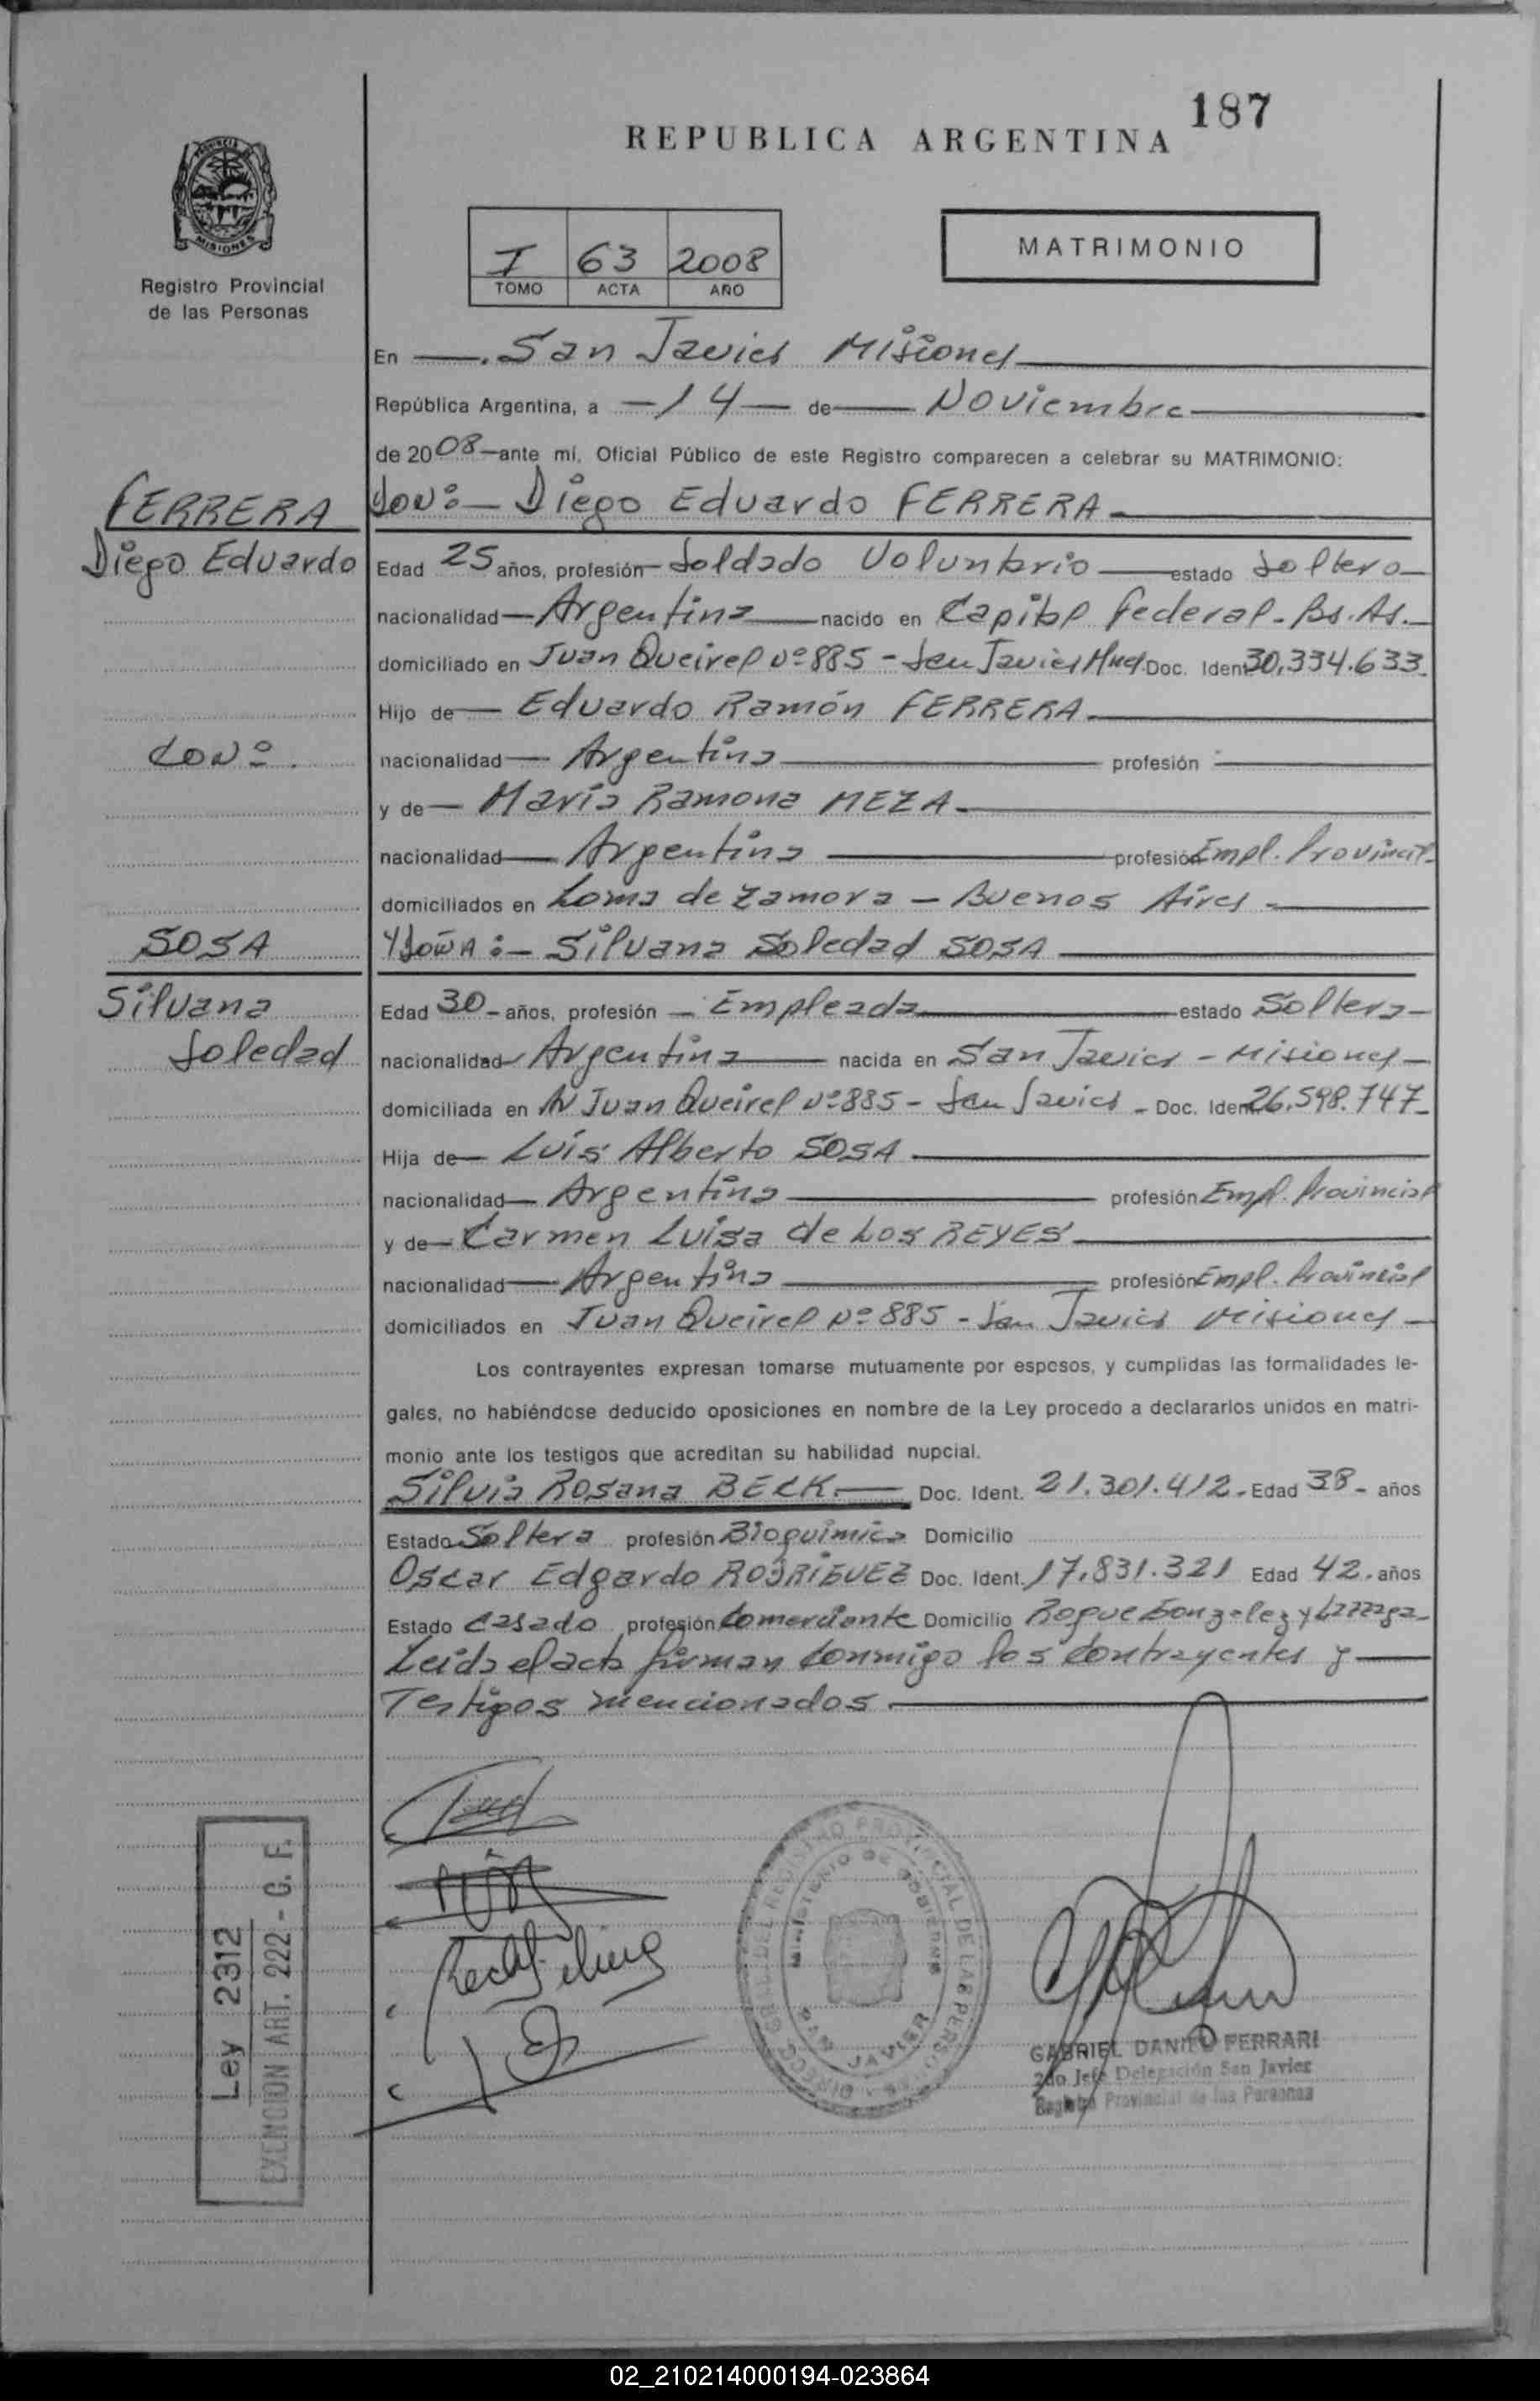 187
REPUBLICA ARGENTINA
PROVINCIA DE
MISIONES
Registro Provincial
de las Personas
I 63 2008
TOMO ACTA AÑO
MATRIMONIO
En San Javier Misiones
República Argentina, a 14 de Noviembre
de 2008 ante mí, Oficial Público de este Registro comparecen a celebrar su MATRIMONIO:
FERRERA
DON: Diego Eduardo FERRERA
Diego Eduardo
Edad 25 años, profesión Soldado Voluntario estado Soltero
nacionalidad Argentina nacido en Capital Federal - Bs. As.
domiciliado en Juan Queirel Nº 885 - San Javier Mnes. Doc. Ident. 30.334.633
Hijo de Eduardo Ramón FERRERA
CON:
nacionalidad Argentina profesión
y de María Ramona MEZA
nacionalidad Argentina profesión Empl. Provincial
domiciliados en Loma de Zamora - Buenos Aires
SOSA
Y DOÑA: Silvana Soledad SOSA
Silvana
Soledad
Edad 30 años, profesión Empleada estado Soltera
nacionalidad Argentina nacida en San Javier - Misiones
domiciliada en Av Juan Queirel Nº 885 - San Javier - Doc. Ident. 26.598.747
Hija de Luis Alberto SOSA
nacionalidad Argentina profesión Empl. Provincial
y de Carmen Luisa de Los REYES
nacionalidad Argentina profesión Empl. Provincial
domiciliados en Juan Queirel Nº 885 - San Javier Misiones
Los contrayentes expresan tomarse mutuamente por esposos, y cumplidas las formalidades le-
gales, no habiéndose deducido oposiciones en nombre de la Ley procedo a declararlos unidos en matri-
monio ante los testigos que acreditan su habilidad nupcial.
Silvia Rosana BECK Doc. Ident. 21.301.412 - Edad 38 - años
Estado Soltera profesión Bioquímica Domicilio
Oscar Edgardo RODRIGUEZ Doc. Ident. 17.831.321 Edad 42. años
Estado Casado profesión Comerciante Domicilio Roque Gonzalez y
Leida el acta firman conmigo los contrayentes y
Testigos mencionados.
Ley 2312
EXENCION ART. 222 - C. F.
DIRECC. GRAL. DEL REGISTRO PROVINCIAL DE LAS PERSONAS
MINISTERIO DE GOBIERNO
SAN JAVIER
GABRIEL DANIEL FERRARI
2do Jefe Delegación San Javier
Registro Provincial de las Personas
02_210214000194-023864